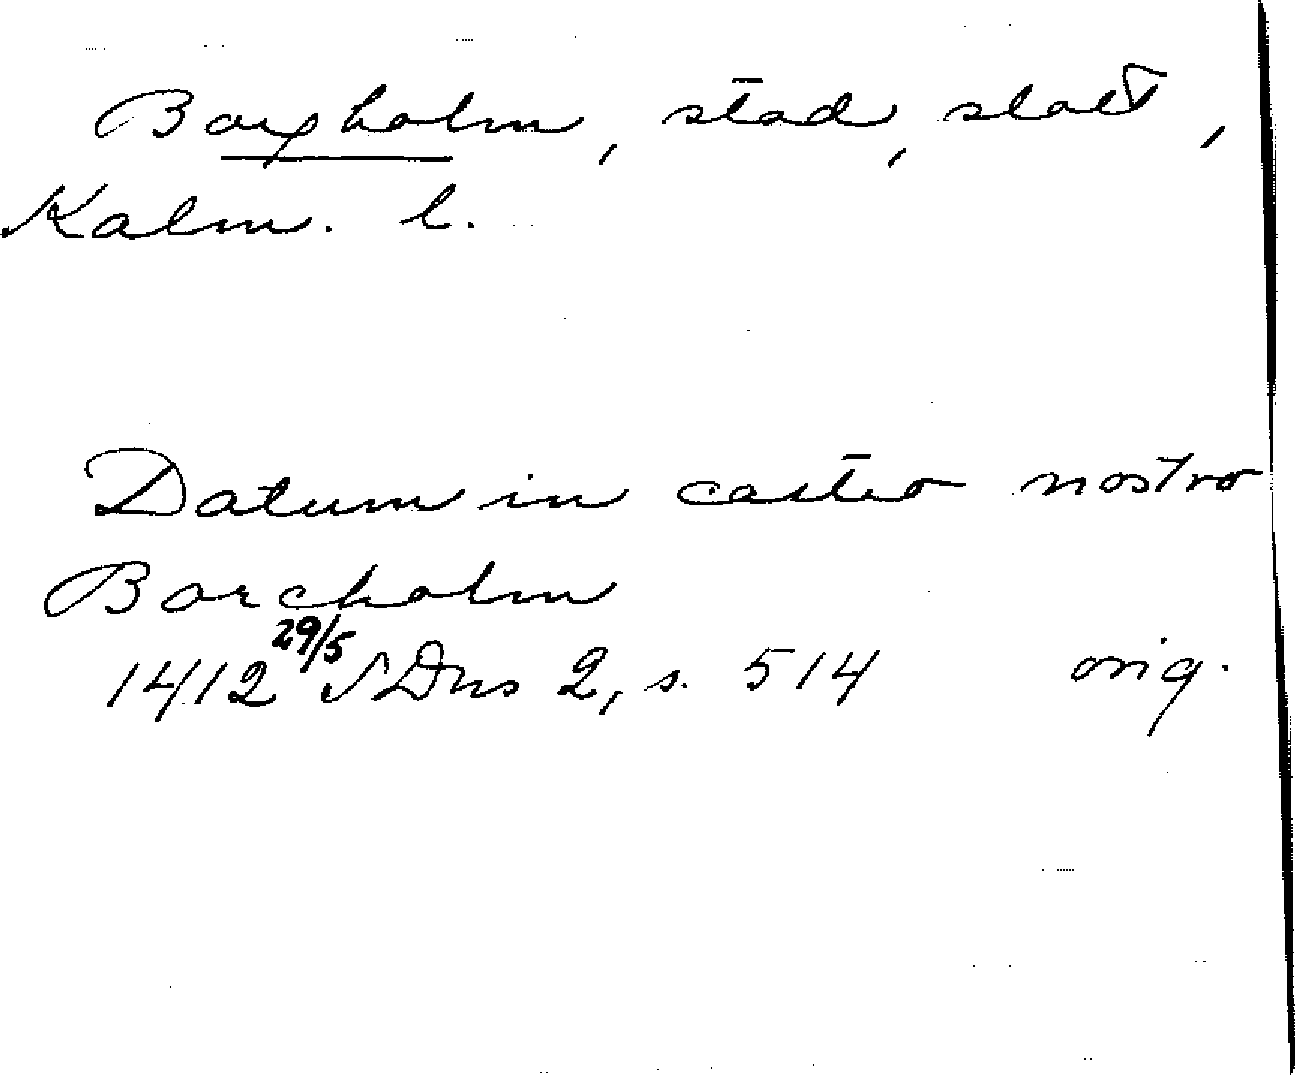 Borgholm, stad, slott,
Kalm. l.
Datum in castro nostro
Borcholm
1412 29/5 SDns 2, s. 514 orig.